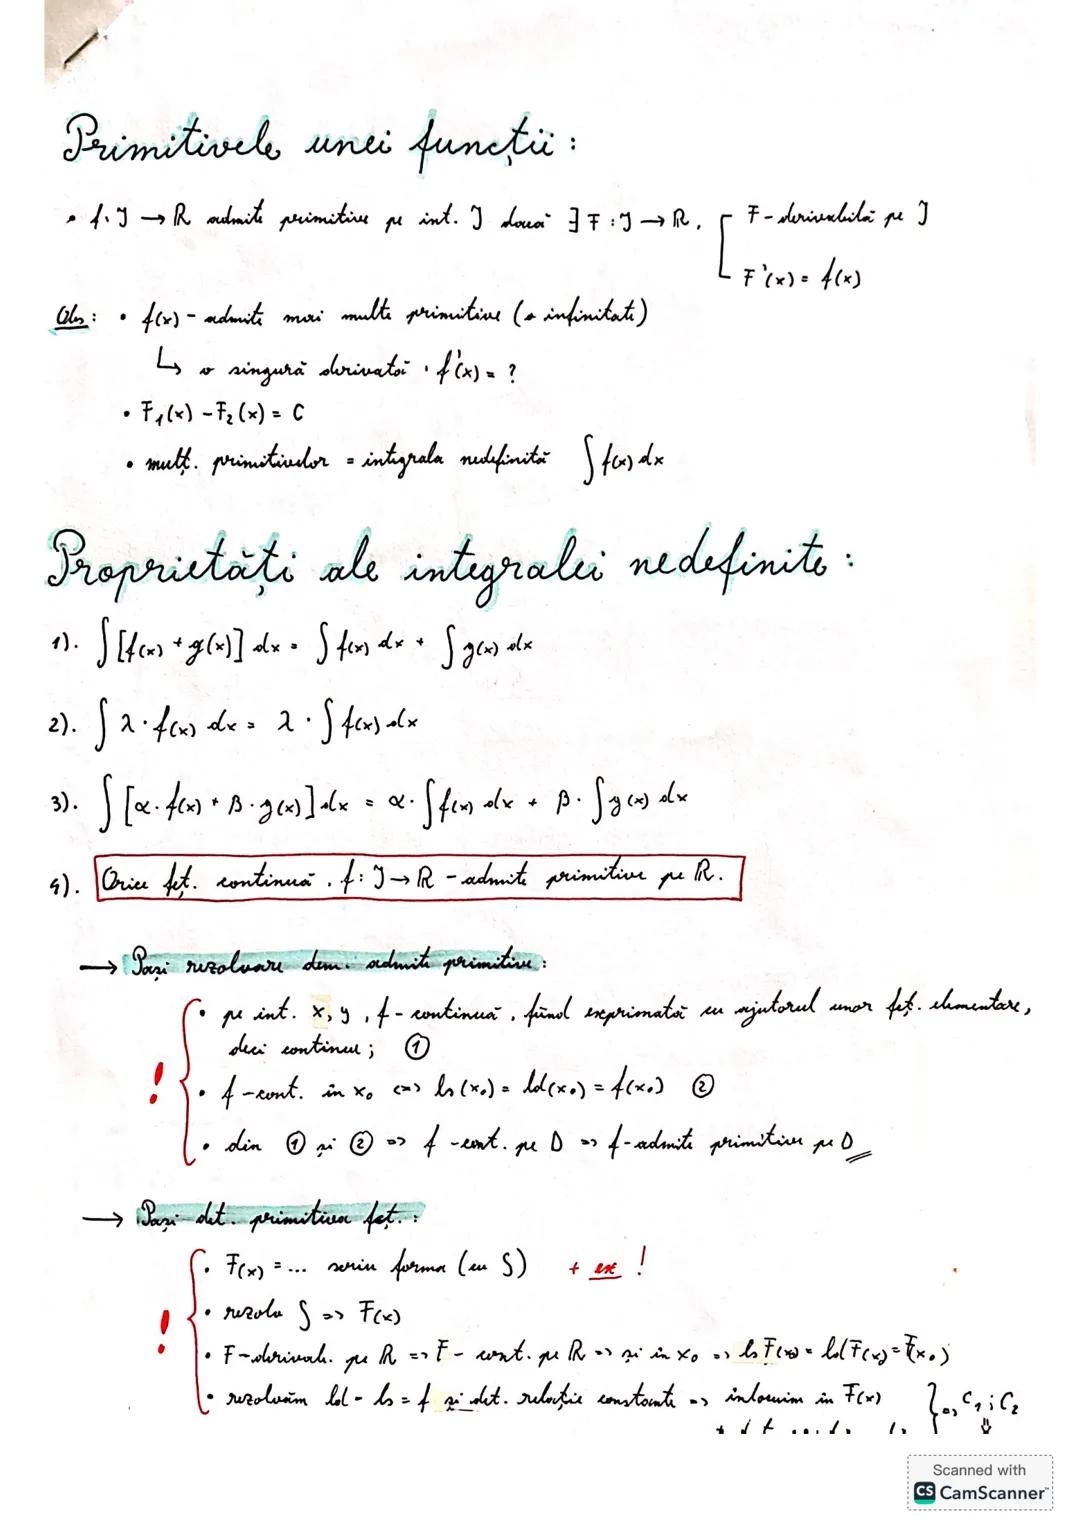 Primitivele unei funcții :
• f: J → R admite primitive pe int. J dacă ∃ F : J → R, F - derivabilă pe J
F'(x) = f(x)
Obs : • f(x) - admite mai multe primitive (o infinitate)
↳ o singură derivată · f'(x) = ?
• F₁(x) - F₂(x) = C
• mulț. primitivelor = integrala nedefinită ∫ f(x) dx
Proprietăți ale integralei nedefinite :
1). ∫ [f(x) + g(x)] dx = ∫ f(x) dx + ∫ g(x) dx
2). ∫ λ · f(x) dx = λ · ∫ f(x) dx
3). ∫ [α · f(x) + β · g(x)] dx = α · ∫ f(x) dx + β · ∫ g(x) dx
4). Orice fct. continuă , f : J → R - admite primitive pe R.
→ Pași rezolvare dem. admite primitive :
• pe int. x, y , f - continuă , fiind exprimată cu ajutorul unor fcț. elementare,
deci continue ; ①
! • f - cont. în x₀ <=> ls(x₀) = ld(x₀) = f(x₀) ②
• din ① și ② => f - cont. pe D => f - admite primitive pe D
→ Pași det. primitiva fcț. :
• F(x) = ... scriu forma (cu ∫) + ex !
! • rezolv ∫ => F(x)
• F - derivab. pe R => F - cont. pe R => și în x₀ => ls F(x) = ld F(x) = F(x₀)
• rezolvăm ld - ls = f și det. relație constante => înlocuim în F(x) } => C₁ ; C₂
Scanned with
CS CamScanner